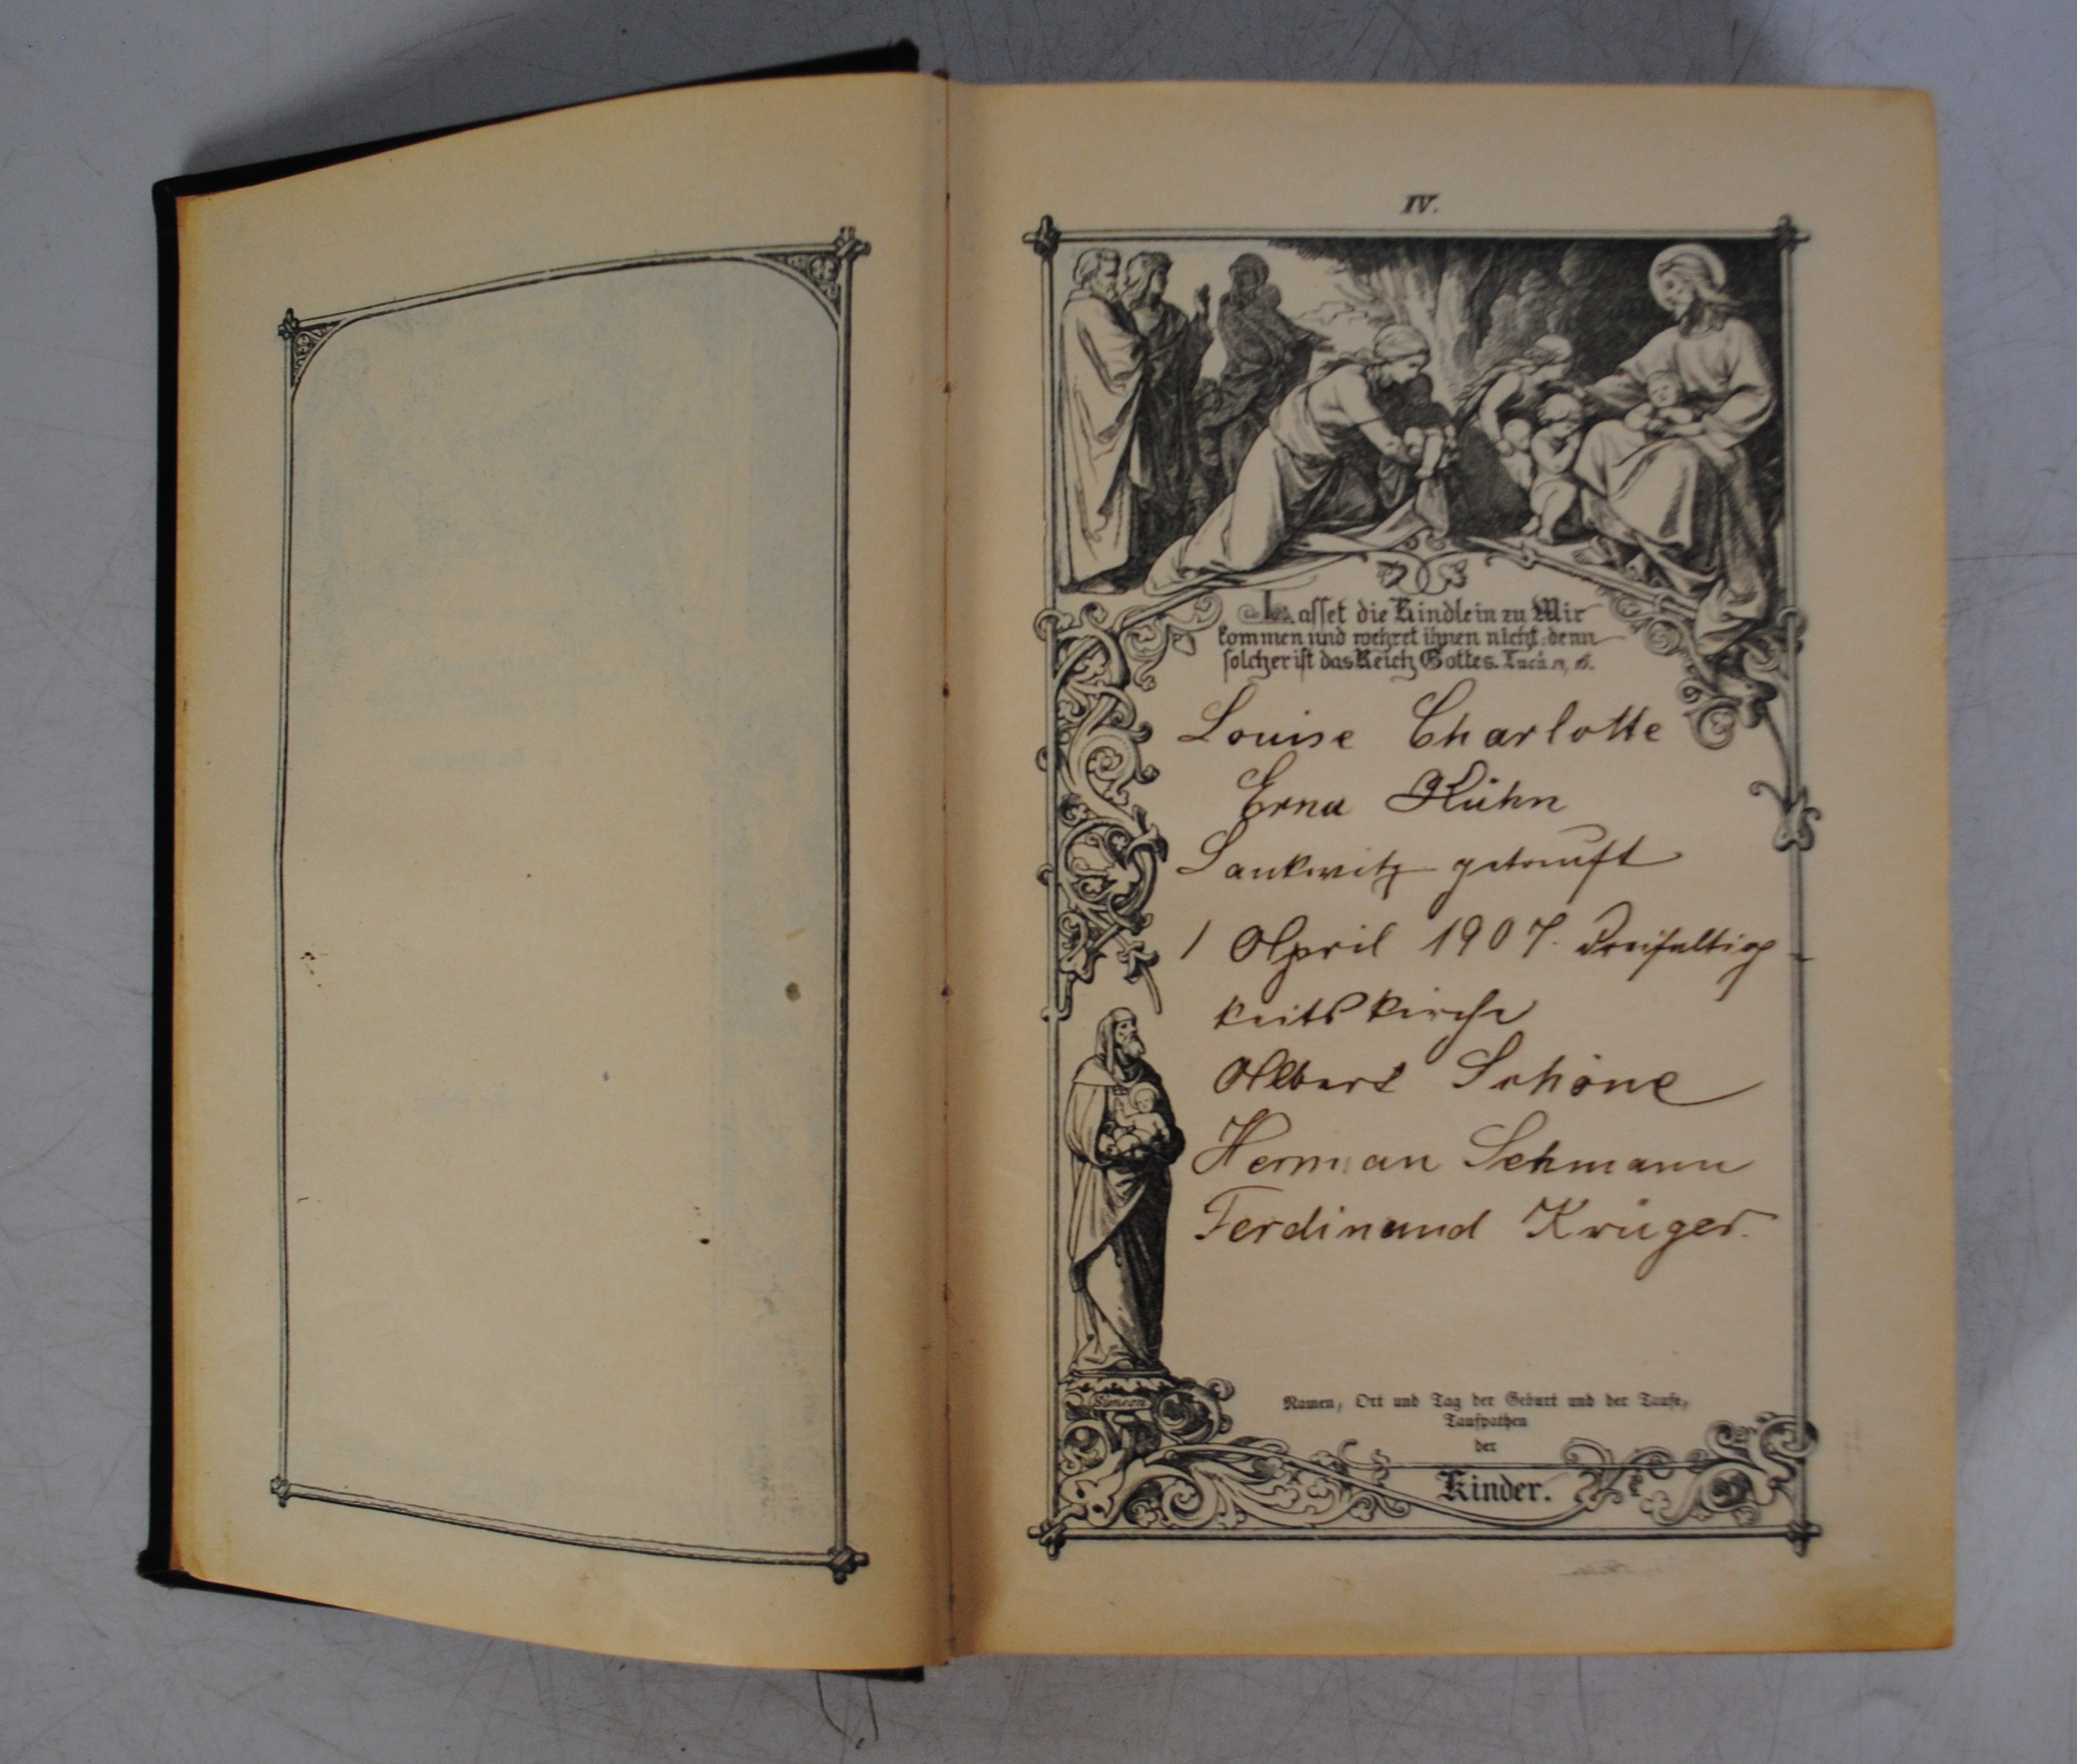 IV.
Lasset die Kindlein zu Mir
kommen und wehret ihnen nicht, denn
solcher ist das Reich Gottes. Lucä
Louise Charlotte
Erna Kühn
Lankwitz getauft
1 April 1907. Dreifaltig-
keitskirche
Albert Schöne
Herman Lehmann
Ferdinand Krüger.
Simeon
Namen, Ort und Tag der Geburt und der Taufe,
Taufpathen
der
Kinder.